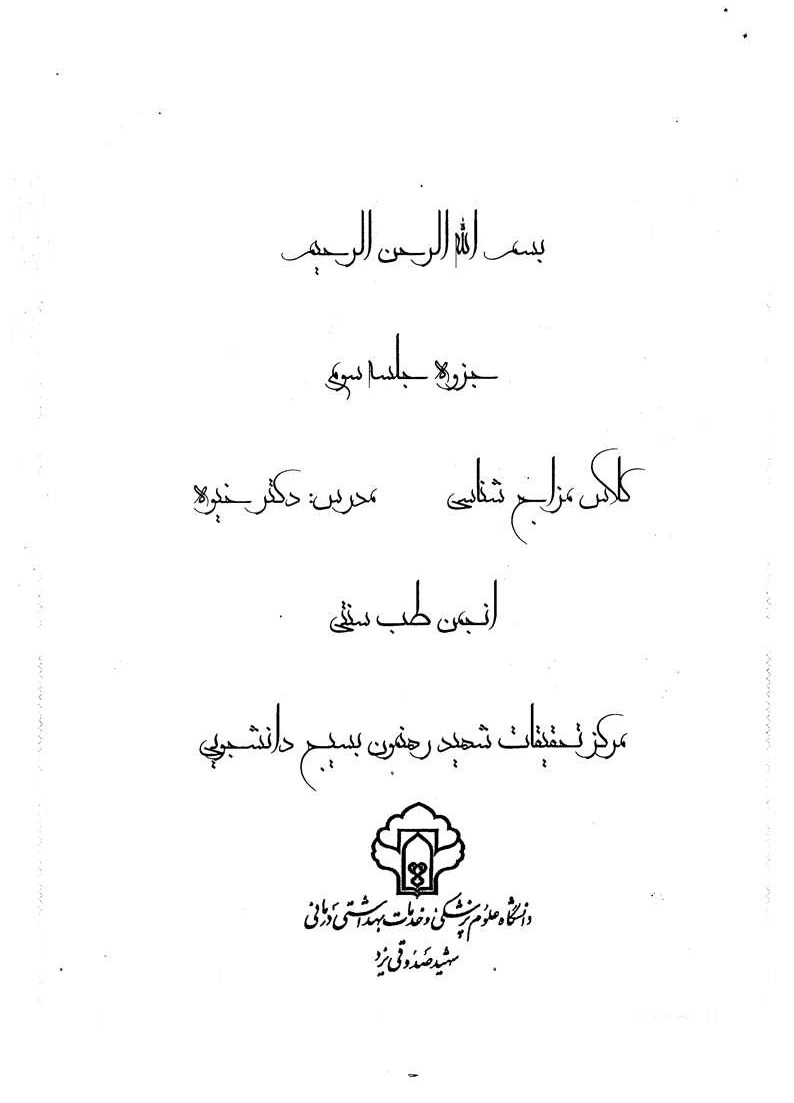 بسم الله الرحمن الرحیم
جزوه جلسه سوم
کلاس مزاج شناسی مدرس: دکتر خیوه
انجمن طب سنتی
مرکز تحقیقات شهید رهنمون بسیج دانشجویی
دانشگاه علوم پزشکی و خدمات بهداشتی درمانی
شهید صدوقی یزد